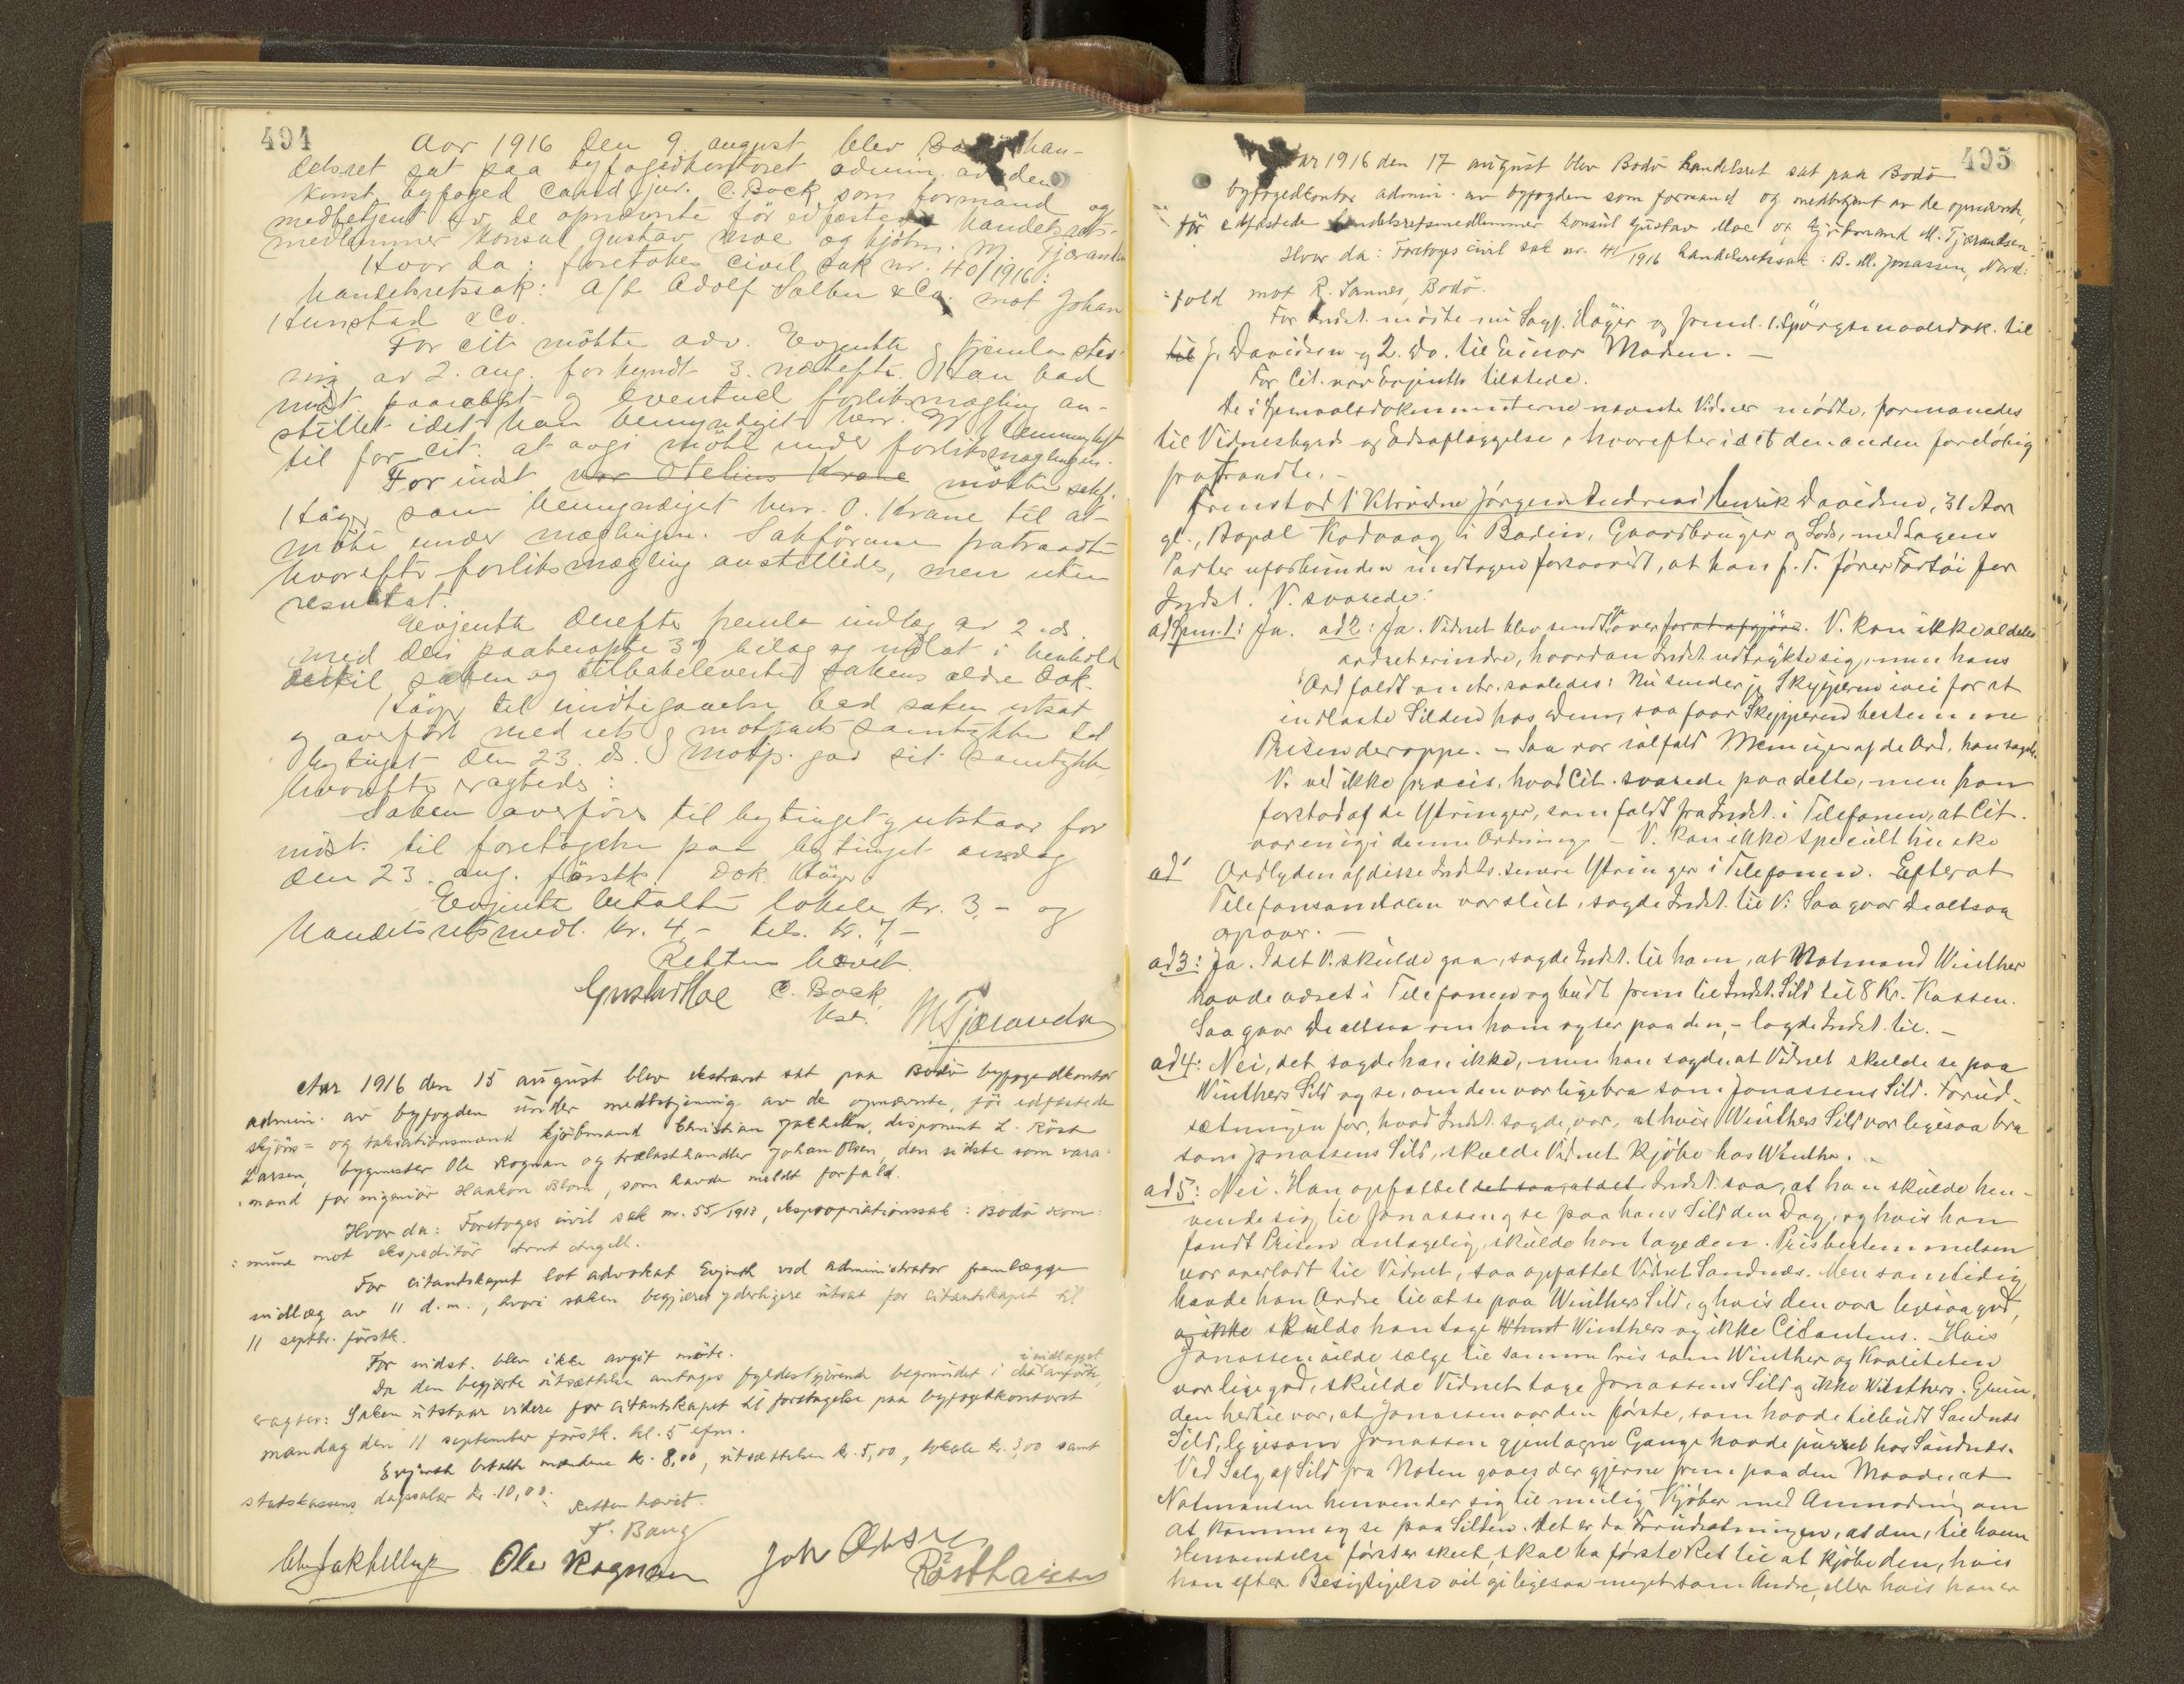 494
Aar 1916 den 9. august blev Bodø han-
delsret sat paa byfogedkontoret admin. av den
konst. byfoged cand. jur. C. Bock som formand og
medbetjent av de opnævnte før edfæstede handelsrets-
medlemmer konsul Gustav Moe og kjøbm. M. Tjærandsen
Hvor da: foretokes civil sak nr. 40/1916:
handelsretssak: A/S Adolf & Co. mot Johan
Hunstad & Co.
For cit. møtte adv. Evjenth og fremla stev-
ning av 2. aug. forkyndt 3. næstefter. Han bad
indst. paaropt og eventuel forliksmægling an-
stillet idet han bemyndiget herr. W.
til for cit. at avgi møte under forliksmæglingen.
For indst. var Otelius Krane møtte sakf.
Høyer som bemyndiget herr. O. Krane til at
møte under mæglingen. Sakførerne fratraadte
hvorefter forliksmægling anstilledes, men uten
resultat.
Evjenth derefter fremla indlæg av 2. ds.
med deri paaberopte 37 bilag og indlot i henhold
dertil saken og tilbakeleverte sakens ældre dok.
Høyer til imøtegaaelse bad saken utsat
og overført med rets og motparts samtykke til
bytinget den 23. ds. Motp. gav sit samtykke
hvorefter eragtedes:
Saken overføres til bytinget og utstaar for
indst. til foretagelse paa bytinget onsdag
den 23. aug. førstk. Dok. Høyer
Evjenth betalte lokale kr. 3,- og
handelsretsmedl. kr. 4,- tils. kr. 7,-
Retten hævet.
Gustav Moe C. Bock M. Tjærandsen
kst.
Aar 1916 den 15 august blev ekstraret sat paa Bodø byfogedkontor
admin. av byfogden under medbetjening av de opnævnte, før edfæstede
skjøns= og taksationsmænd kjøbmand Christian Jakhelln, disponent L. Röst
Larsen, bygmester Ole Rognan og trælasthandler Johan Olsen, den sidste som vara-
mand for ingeniør Haakon Blom, som havde meldt forfald.
Hvor da: Foretoges civil sak nr. 55/1913, ekspropriationssak: Bodø kom-
mune mot ekspeditör Arnt Angell.
For citantskapet lot advokat Evjenth ved administrator fremlægge
indlæg av 11 d.m., hvori saken begjæres yderligere utsat for citantskapet til
11 septbr. førstk.
For indst. blev ikke avgit møte.
Da den begjærte utsættelse antages fyldestgjørende begrundet i det i indlægget anførte,
eragter: Saken utstaar videre for citantskapet til foretagelse paa byfogedkontoret
mandag den 11 september førstk. kl. 5 efm.
Evjenth betalte mændene kr. 8,00, utsættelsen kr. 5,00, lokale kr. 3,00 samt
statskassens dagsalær kr. 10,00.
Retten hævet.
F. Bang
Chr Jakhelln Ole Rognan Joh Olsen
Röst Larsen
495
Aar 1916 den 17 august blev Bodø handelsret sat paa Bodø
byfogedkontor admin. av byfogden som formand og medbetjent av de opnævnte,
før edfæstede handelsretsmedlemmer konsul Gustav Moe og kjøbmand M. Tjærandsen
Hvor da: Foretoges civil sak nr. 41/1916 handelsretssak: B. M. Jonassen, Nord-
fold mot R. Sannes, Bodø.
For Indst. mødte nu Sagf. Høyer og freml. 1. Spørgsmaalsdok. til
til J. Davidsen og 2. do. til Einar Madsen. —
For Cit. var Evjenth tilstede.
De i Spmaalsdokumenterne nævnte Vidner mødte, formanedes
til Vidnesbyrd og Edsaflæggelse, hvorefter idet den anden foreløbig
fratraadte. —
Fremstod 1' Vidne Jørgen Andreas Henrik Davidsen, 31 Aar
gl., Bopæl Kodvaag i Bodin, Gaardbruger og Lods, med Sagens
Parter uforbunden undtagen forsaavidt, at han f. T. fører Fartøi for
Indst. V. svarede:
ad Spm. 1: Ja. ad 2: Ja. Vidnet blev sendt over for at afgjøre. V. kan ikke aldeles
ordret erindre, hvordan Indst. udtrykte sig, men hans
Ord faldt omtr. saaledes: Nu sender jeg Skipperen ivei for at
indlaste Silden hos Dem, saa faar Skipperen bestemme
Prisen deroppe. — Saa var ialfald Meningen af de Ord, han sagde.
V. ved ikke præcis, hvad Cit. svarede paa dette, men han
forstod af de Ytringer, som faldt fra Indst. i Telefonen, at Cit.
var enig i denne Ordning. — V. kan ikke specielt huske
ad Ordlyden af disse Indsts. senere Ytringer i Telefonen. Efter at
Telefonsamtalen var slut, sagde Indst. til V: Saa gaar De altsaa
opover. —
ad 3: Ja. Idet V. skulde gaa, sagde Indst. til ham, at Notmand Winther
havde været i Telefonen og budt frem til Indst. Sild til 8 Kr. Kassen.
Saa gaar De altsaa om ham og ser paa den, — lagde Indst. til. —
ad 4: Nei, det sagde han ikke, men han sagde, at Vidnet skulde se paa
Winthers Sild og se, om den var ligebra som Jonassens Sild. Forud-
sætningen for, hvad Indst. sagde, var, at hvis Winthers Sild var ligesaa bra
som Jonassens Sild, skulde Vidnet kjøbe hos Winther. —
ad 5: Nei. Han opfattet det saa, at det Indst. saa, at han skulde hen-
vende sig til Jonassen og se paa hans Sild den Dag, og hvis han
fandt Prisen antagelig, skulde han tage den. Prisbestemmelsen
var overladt til Vidnet, saa opfattet Vidnet Sandnæs. Men samtidig
havde han Ordre til at se paa Winthers Sild, og hvis den var ligesaa god,
og ikke skulde han tage Winthers og ikke Citantens. Hvis
Jonassen vilde sælge til samme Pris som Winther og Kvaliteten
var lige god, skulde Vidnet tage Jonassens Sild og ikke Winthers. Grun-
den hertil var, at Jonassen var den første, som havde tilbudt Sandnæs
Sild, ligesom Jonassen gjentagne Gange havde purret hos Sandnæs.
Ved Salg af Sild fra Noten gaaes der gjerne frem paa den Maade, at
Notmanden henvender sig til mulig Kjøber med Anmodning om
at komme og se paa Silden. Det er da Forudsætningen, at den, til hvem
Henvendelse først er skeet, skal ha første Ret til at kjøbe den, hvis
han efter Besigtigelse vil gi ligesaa meget som Andre, eller hvis han er